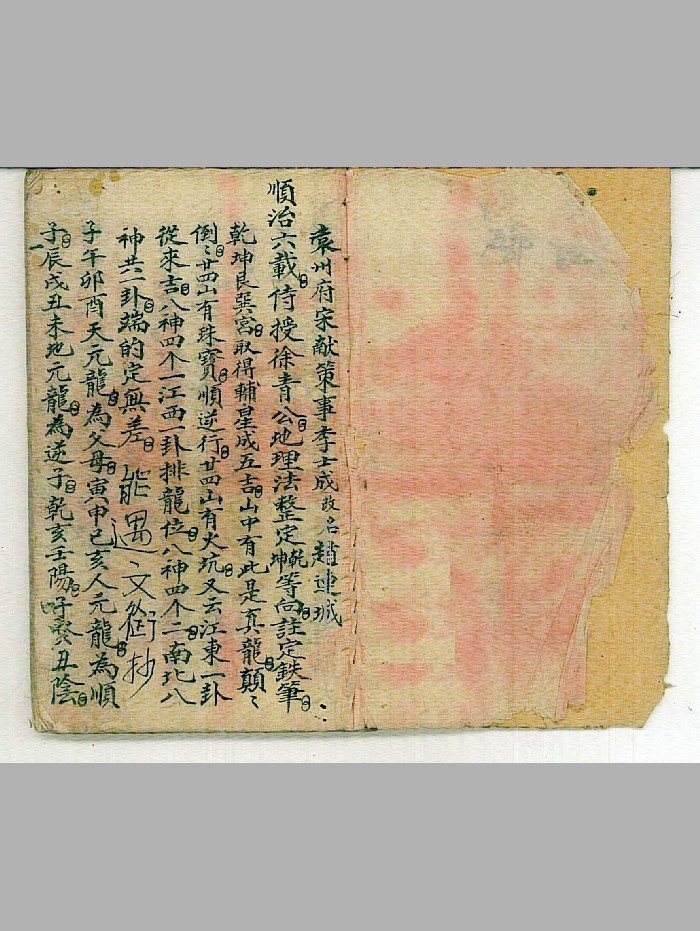 袁州府宋献策事李士成改名趙連城
順治六載侍授徐青公地理法整定乾坤等向註定鉄筆
乾坤艮巽宮取得輔星成五吉山中有此是真龍顛〻
倒〻廿四山有珠寶順逆行廿四山有火坑又云江東一卦
從來吉八神四个一江西一卦排龍位八神四个二南北八
神共一卦端的定無差能遇文衜抄
子午卯酉天元龍為父母寅申巳亥人元龍為順
子辰戌丑未地元龍為逆子乾亥壬陽癸丑陰